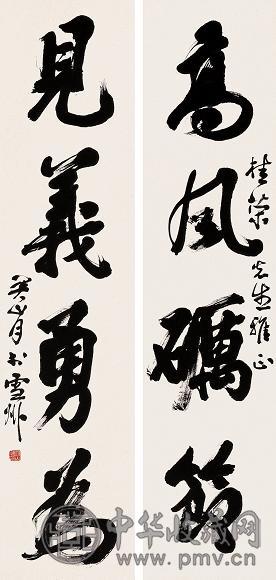 高風礪節
桂荣先生雅正
見義勇為
关山月书雪州
中华收藏网
www.pmv.cn